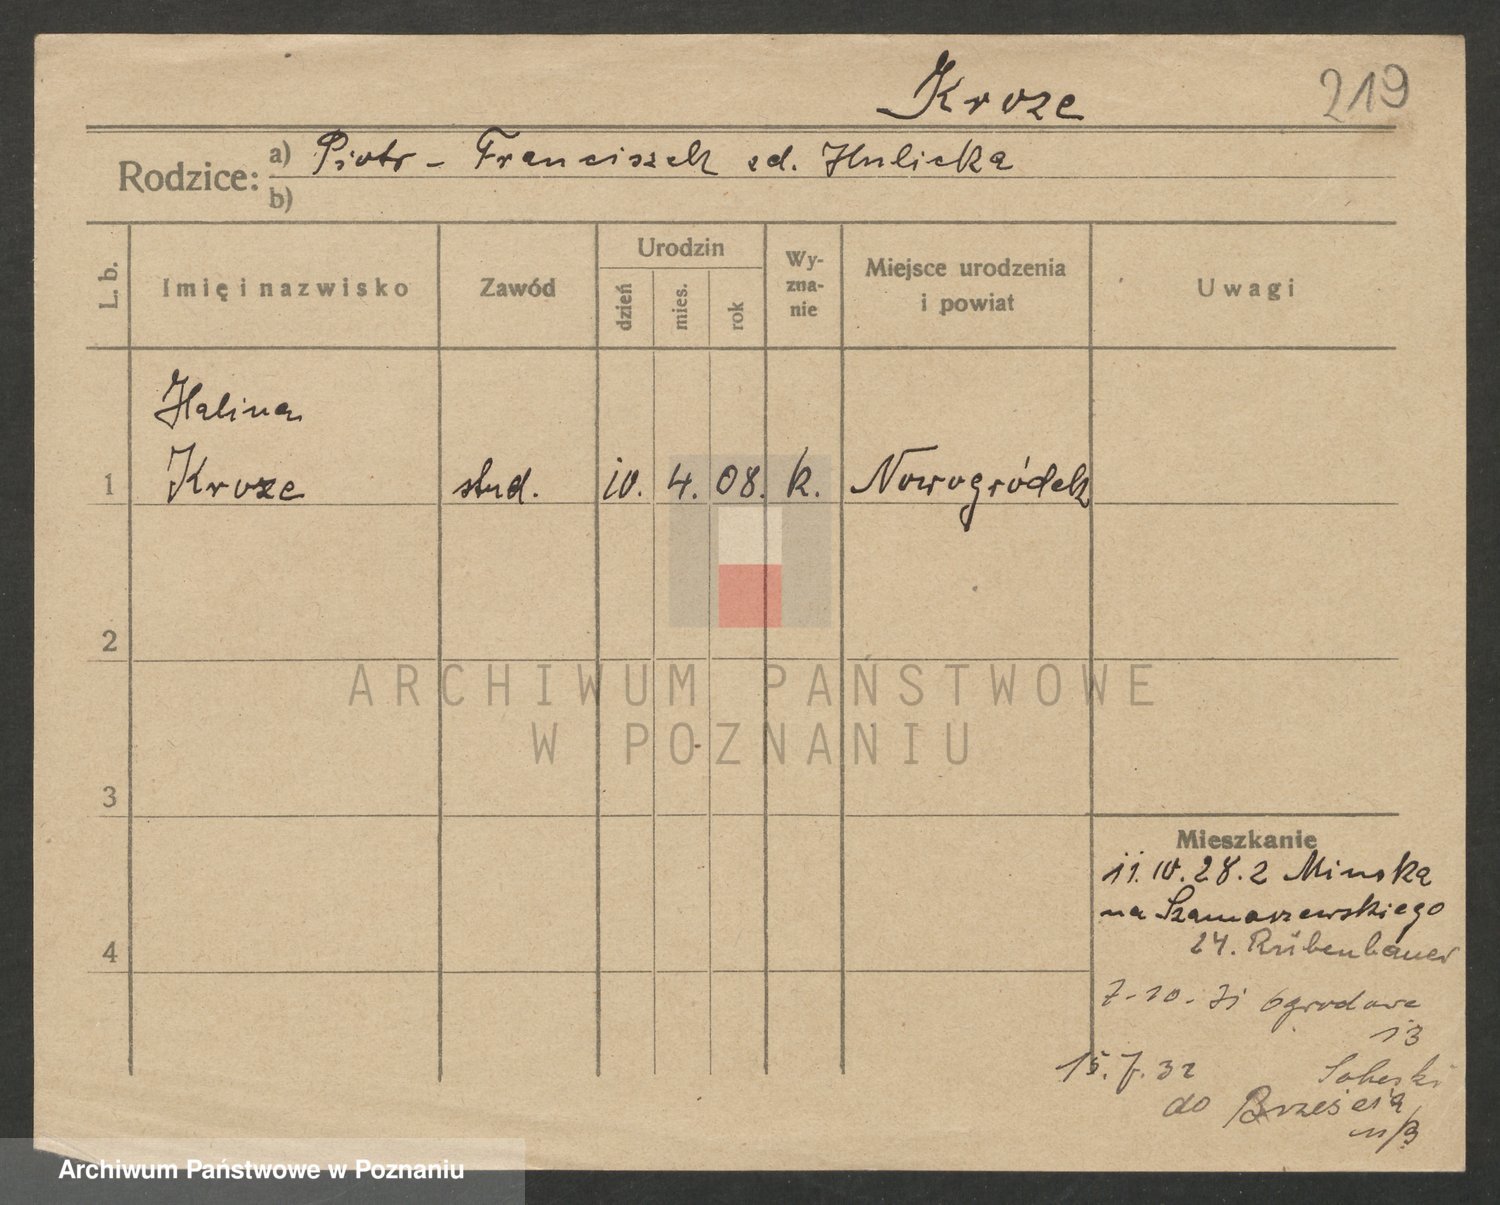 Kroze
219
Rodzice:
a) Piotr - Franciszek zd. Hulicka
b)
L. b.
Imię i nazwisko
Zawód
Urodzin
dzień
mies.
rok
Wy-
zna-
nie
Miejsce urodzenia
i powiat
Uwagi
Halina
1 Kroze stud. 10. 4. 08. k. Nowogródek
2
3
4
Mieszkanie
11. IV. 28. 2 Minska
na Szamarzewskiego
24. Rübenbauer
7-10-31 Ogrodowa
13
15. 7. 32 Sobeski
do Brześcia
n/B
ARCHIWUM PAŃSTWOWE
W POZNANIU
Archiwum Państwowe w Poznaniu